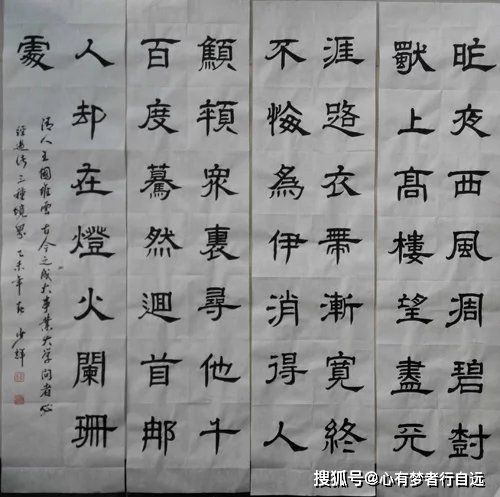 昨夜西風凋碧樹
獨上高樓望盡天
涯路衣帶漸寬終
不悔為伊消得人
顦顇眾裏尋他千
百度驀然迴首那
人却在燈火闌珊
處
清人王國維雲古今之成大事業大學問者必
經過此三種境界 乙未年
搜狐号@心有梦者行自远